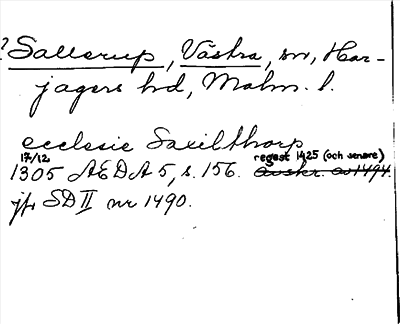 ? Sallerup, Västra, sn, Har-
jagers hd, Malm. l.
ecclesie Saxilthorp
17/12 regest 1425 (och senare)
1305 AEDA 5, s. 156. avskr. av 1494.
jfr SD II nr 1490.